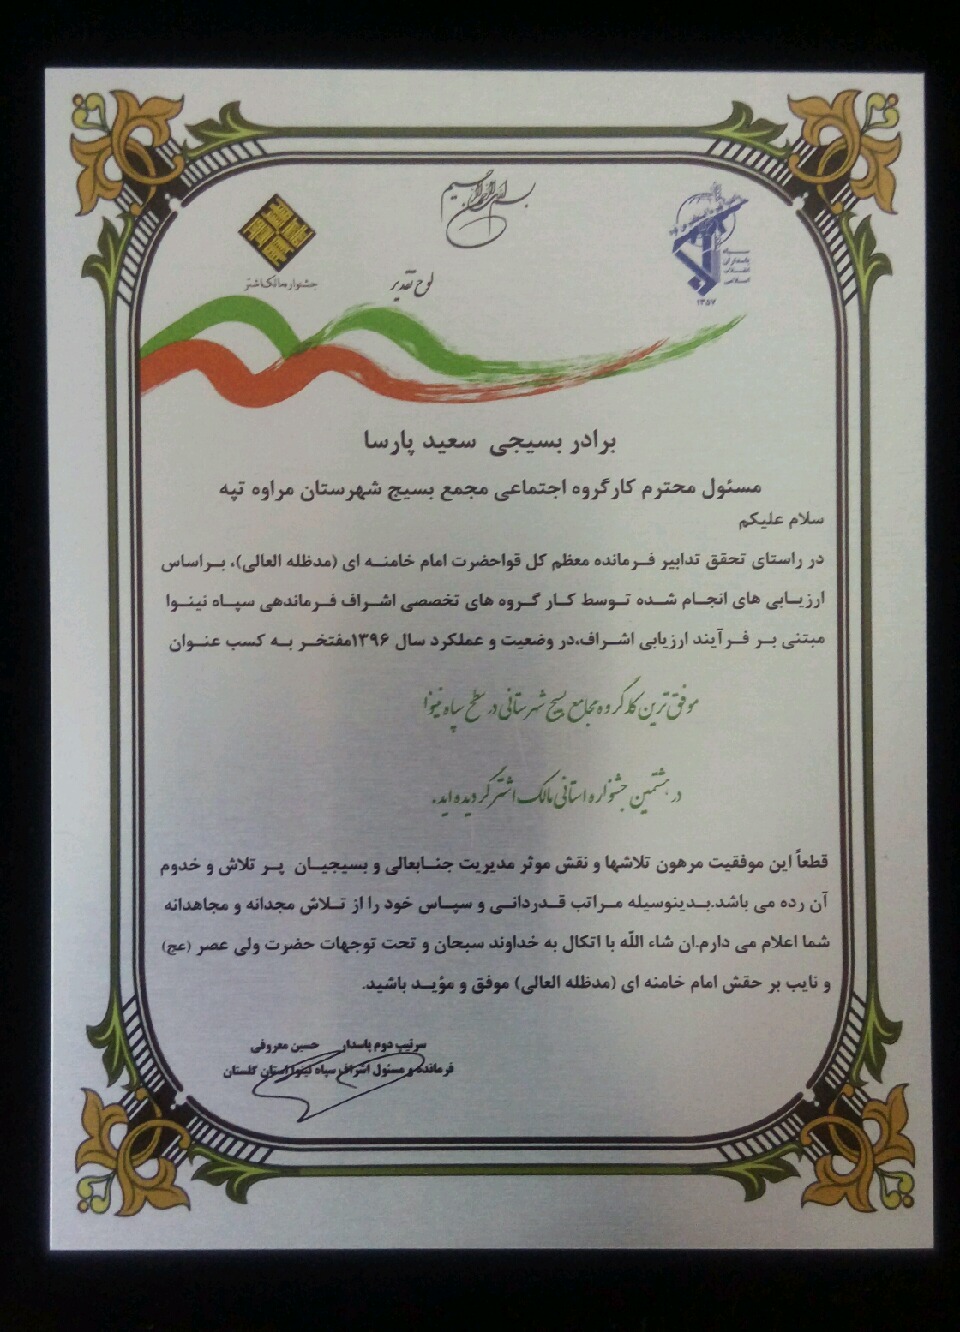 بسم الله الرحمن الرحیم
سپاه
پاسداران
انقلاب
اسلامی
۱۳۵۷
جشنواره مالک اشتر
لوح تقدیر
برادر بسیجی سعید پارسا
مسئول محترم کارگروه اجتماعی مجمع بسیج شهرستان مراوه تپه
سلام علیکم
در راستای تحقق تدابیر فرمانده معظم کل قواحضرت امام خامنه ای (مدظله العالی)، براساس
ارزیابی های انجام شده توسط کار گروه های تخصصی اشراف فرماندهی سپاه نینوا
مبتنی بر فرآیند ارزیابی اشراف،در وضعیت و عملکرد سال ۱۳۹۶مفتخر به کسب عنوان
موفق ترین کارگروه مجامع بسیج شهرستانی در سطح سپاه نینوا
در هشتمین جشنواره استانی مالک اشتر گردیده اید.
قطعاً این موفقیت مرهون تلاشها و نقش موثر مدیریت جنابعالی و بسیجیان پر تلاش و خدوم
آن رده می باشد.بدینوسیله مراتب قدردانی و سپاس خود را از تلاش مجدانه و مجاهدانه
شما اعلام می دارم.ان شاء الله با اتکال به خداوند سبحان و تحت توجهات حضرت ولی عصر (عج)
و نایب بر حقش امام خامنه ای (مدظله العالی) موفق و مؤید باشید.
سرتیپ دوم پاسدار حسین معروفی
فرمانده و مسئول اشراف سپاه نینوا استان گلستان